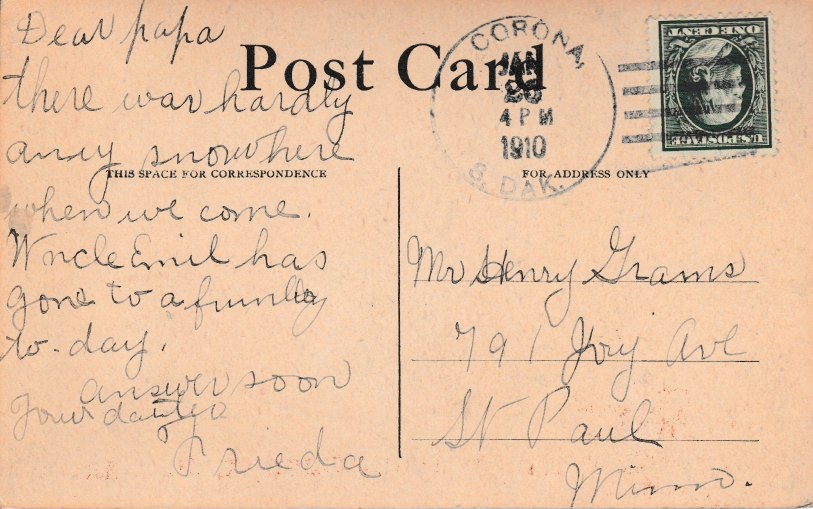 Dear papa
there war hardly
anny snow here
when we come.
Uncle Emil has
gone to a
to-day.
answer soon
Your
Frieda
Post Card
THIS SPACE FOR CORRESPONDENCE
FOR ADDRESS ONLY
CORONA,
JAN
4 PM
1910
S. DAK.
U.S. POSTAGE
ONE CENT
Mr Henry Grams
791 Ivy Ave
St Paul
Minn.